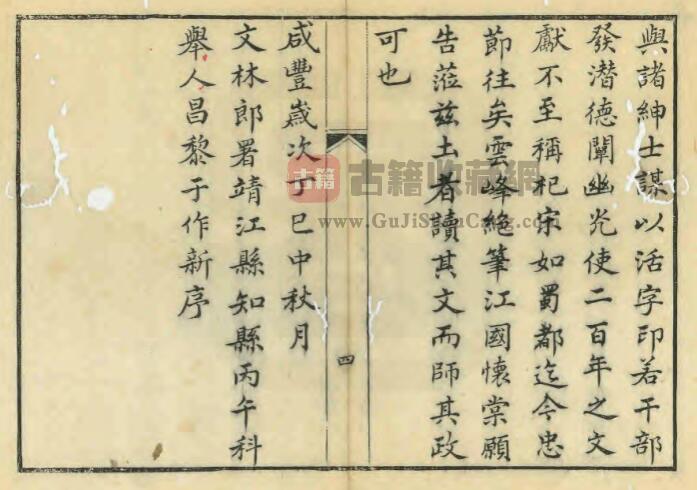 與諸紳士謀以活字印若干部
發潛德闡幽光使二百年之文
獻不至稱杞宋如蜀都迄今忠
節往矣雲峰絶筆江國懷棠願
告蒞茲土者讀其文而師其政
可也
四
咸豐歲次丁巳中秋月
文林郎署靖江縣知縣丙午科
舉人昌黎于作新序
古籍 古籍收藏網
www.GuJiShuCang.com